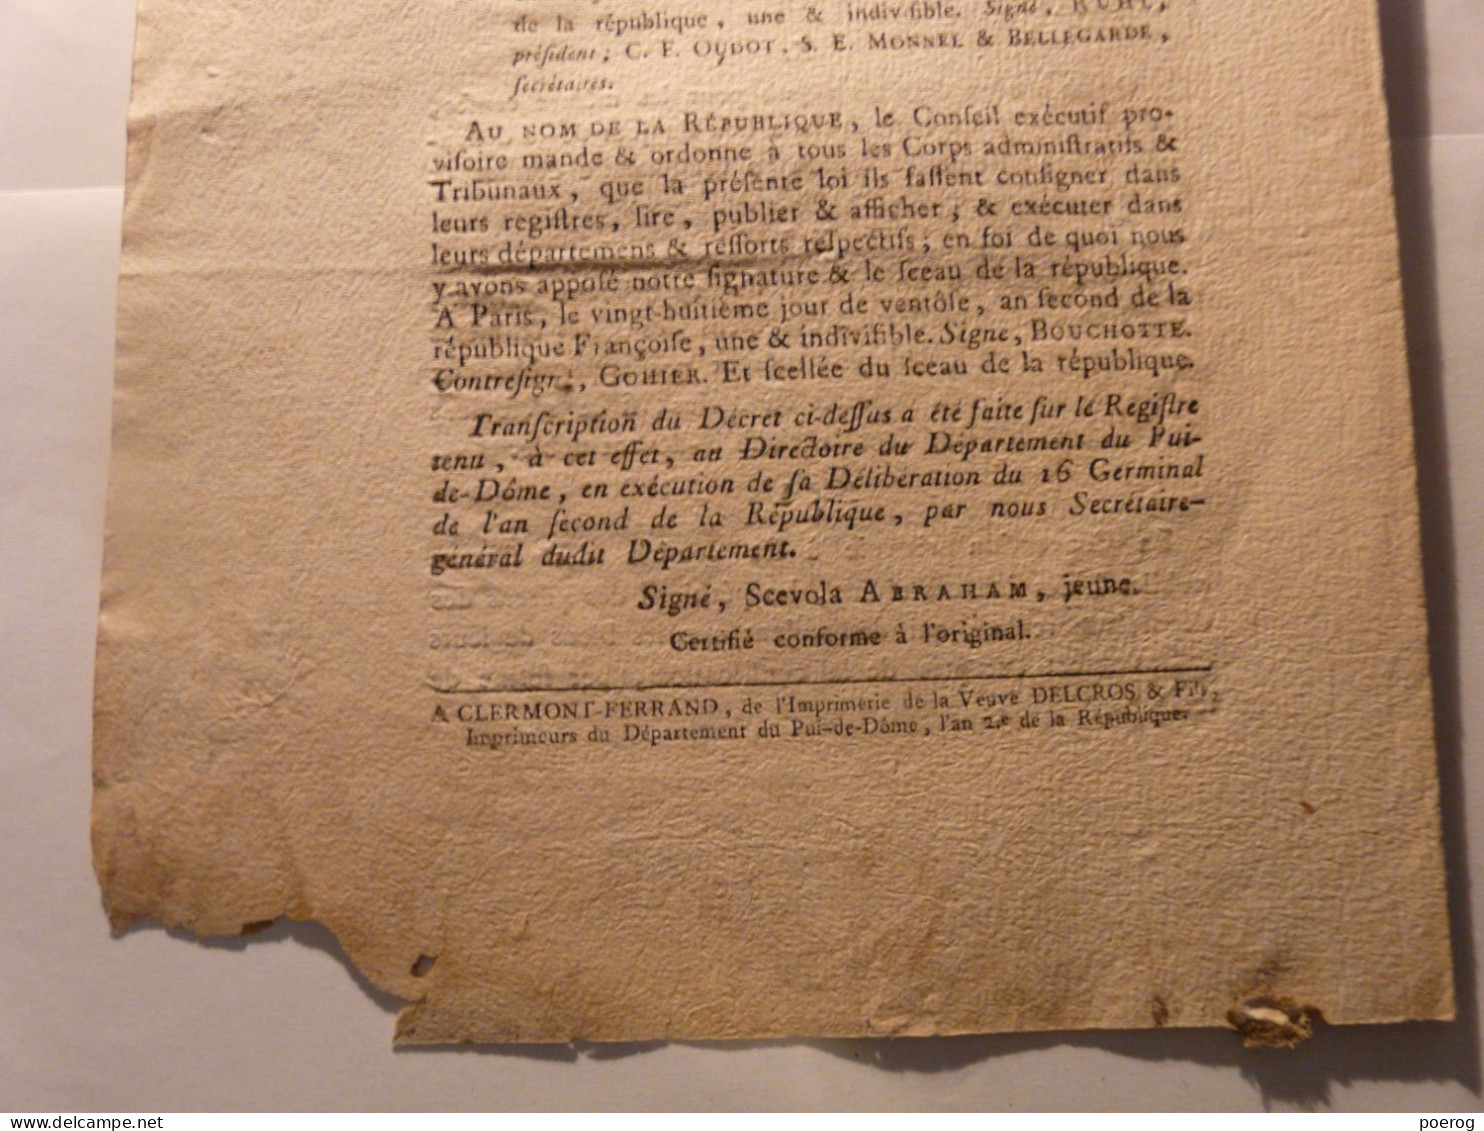 de la république, une & indiviſible. Signé, RUHL,
préſident; C. F. OUDOT, S. E. MONNEL & BELLEGARDE,
ſecrétaires.
AU NOM DE LA RÉPUBLIQUE, le Conſeil exécutif pro-
viſoire mande & ordonne à tous les Corps adminiſtratifs &
Tribunaux, que la préſente loi ils faſſent conſigner dans
leurs regiſtres, lire, publier & afficher, & exécuter dans
leurs départemens & reſſorts reſpectifs; en foi de quoi nous
y avons appoſé notre ſignature & le ſceau de la république.
A Paris, le vingt-huitième jour de ventôſe, an ſecond de la
république Françoiſe, une & indiviſible. Signé, BOUCHOTTE.
Contreſigné, GOHIER. Et ſcellée du ſceau de la république.
Tranſcription du Décret ci-deſſus a été faite ſur le Regiſtre
tenu, à cet effet, au Directoire du Département du Pui-
de-Dôme, en exécution de ſa Délibération du 16 Germinal
de l'an ſecond de la République, par nous Secrétaire-
général dudit Département.
Signé, Scevola ABRAHAM, jeune.
Certifié conforme à l'original.
A CLERMONT-FERRAND, de l'Imprimerie de la Veuve DELCROS & Fils,
Imprimeurs du Département du Pui-de-Dôme, l'an 2.e de la République.
poerog